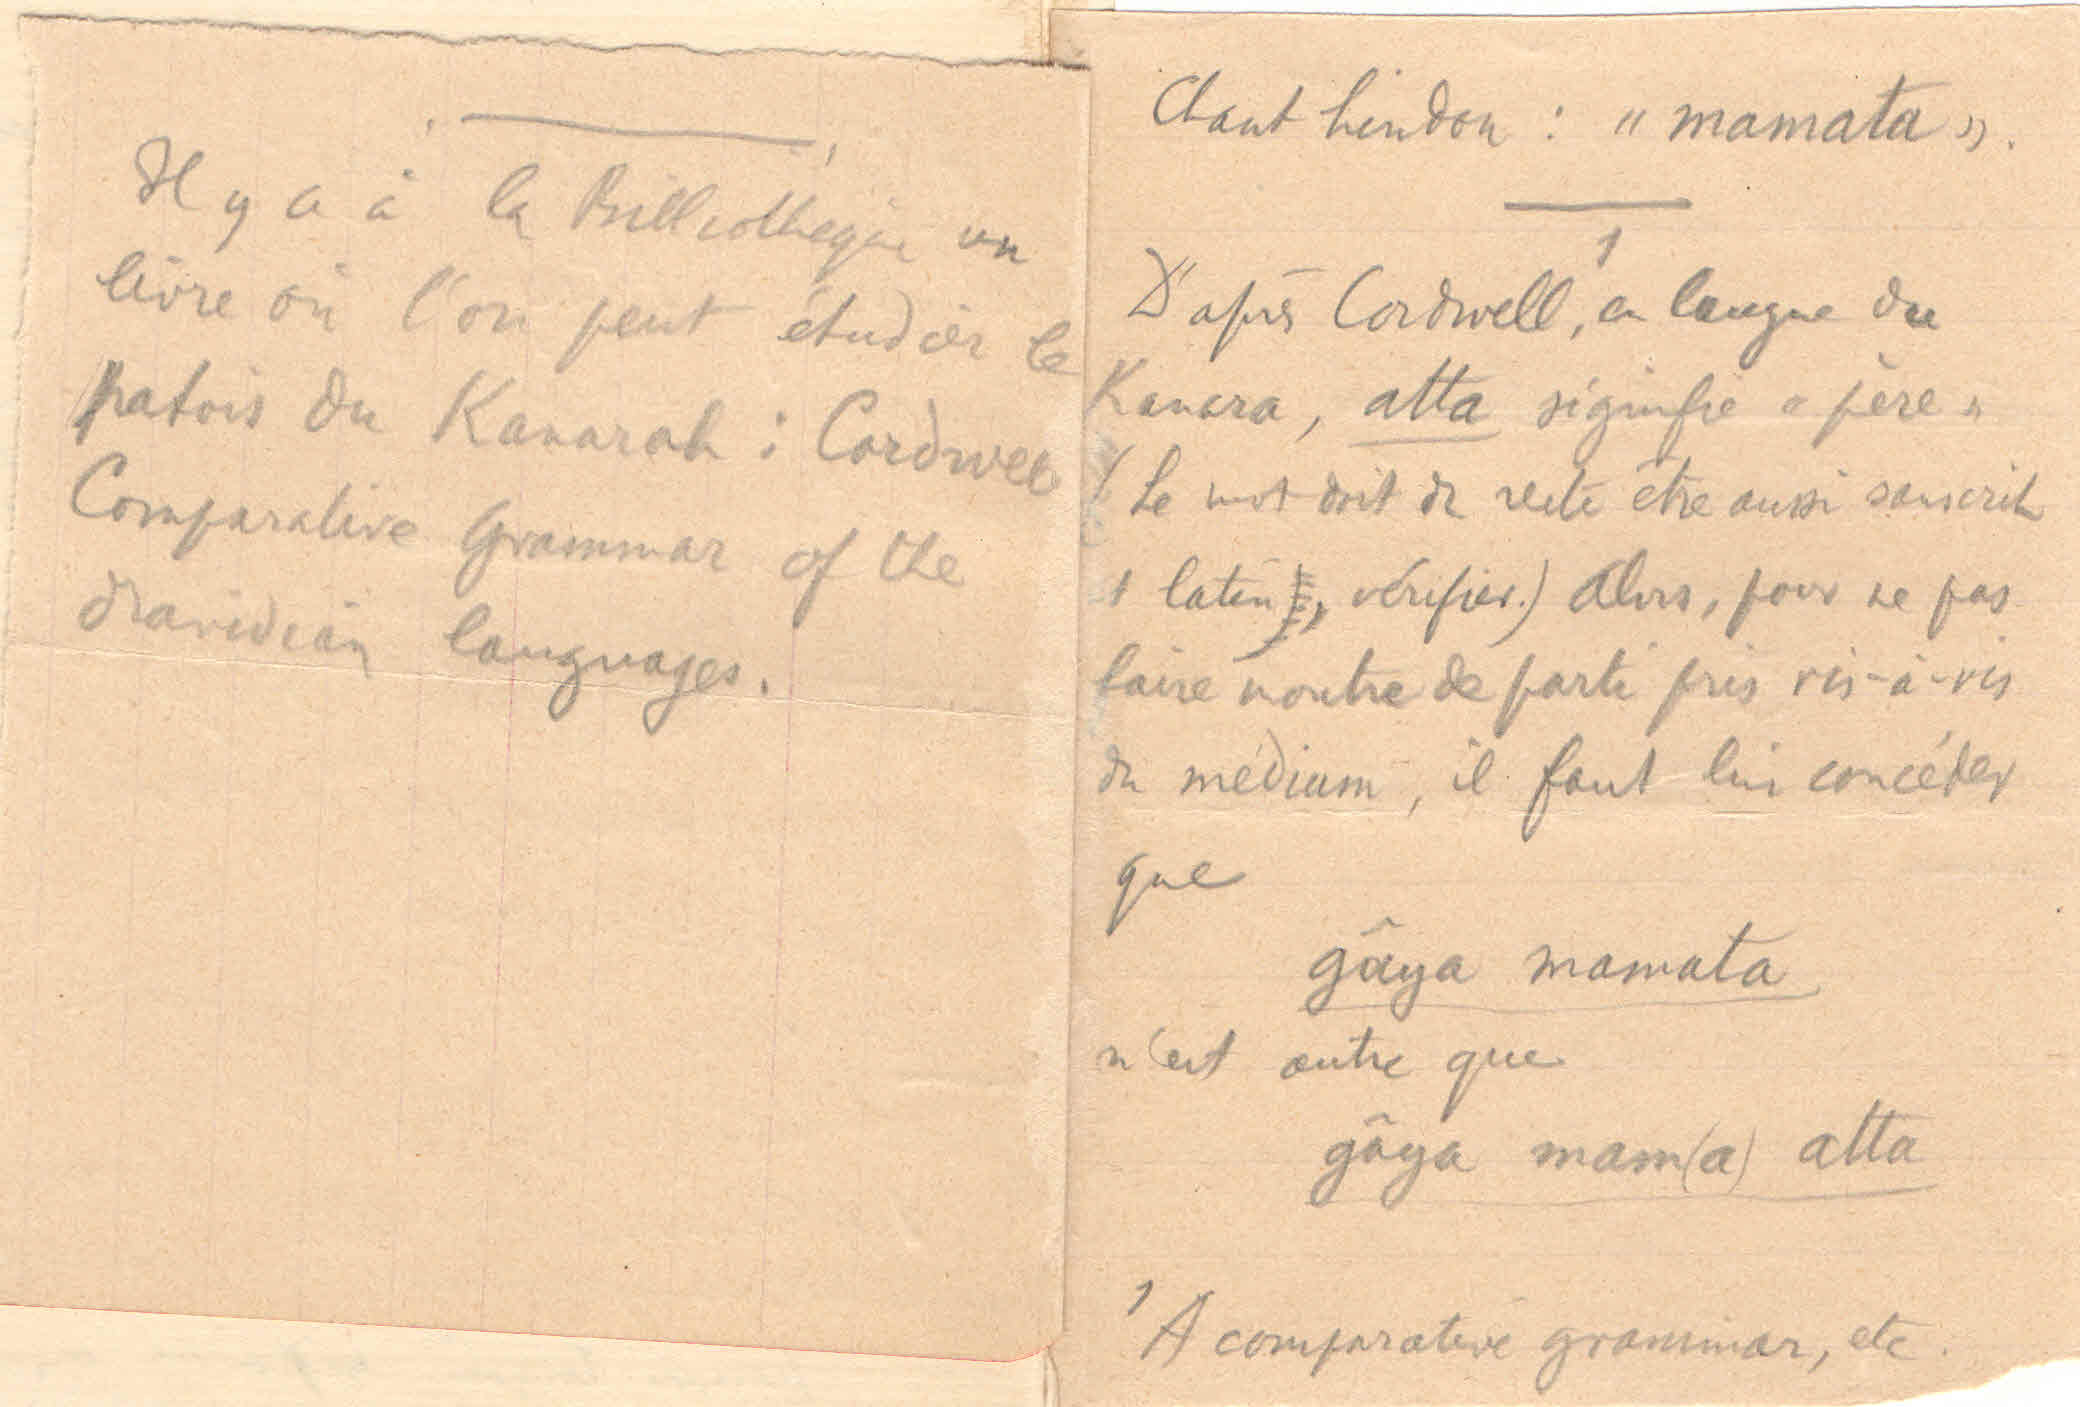 Il y a à la Bibliothèque un
livre où l'on peut étudier le
patois du Kanarah : Cordwell
Comparative Grammar of the
dravidian languages.
Chant hindou : « mamata ».
D'après Cordwell¹, en langue du
Kanara, atta signifie « père »
(Le mot doit du reste être aussi sanscrit
latin, vérifier.) Alors, pour ne pas
faire montre de parti pris vis-à-vis
du médium, il faut lui concéder
que
gâya mamata
n'est autre que
gâya mam(a) atta
¹ A comparative grammar, etc.